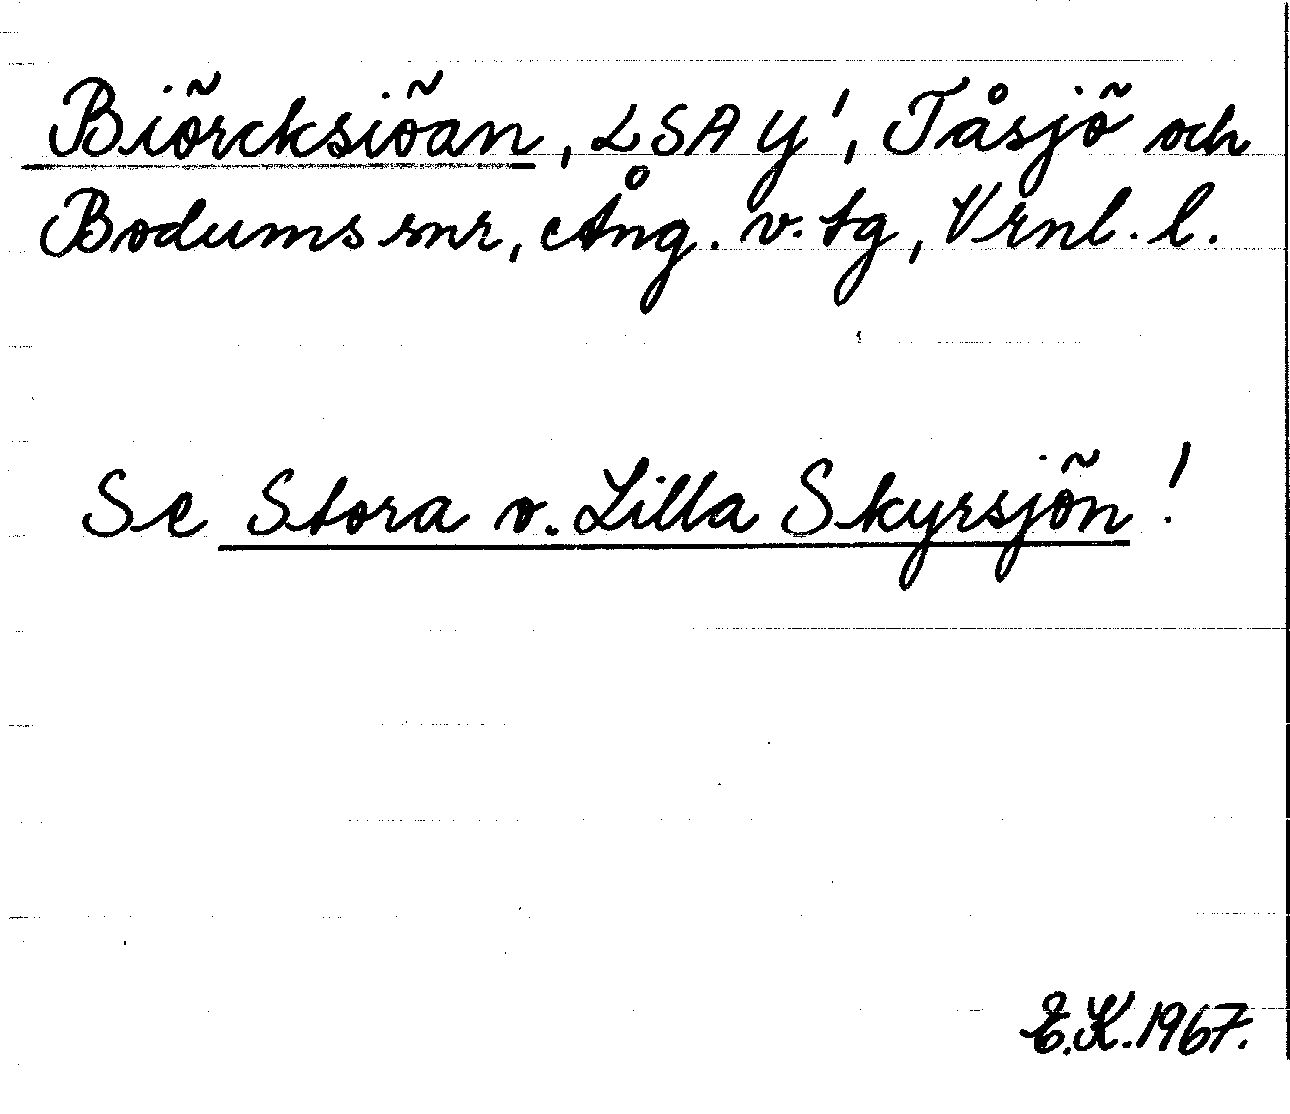 Biörcksiöan, LSA Y', Tåsjö och
Bodums snr, Ång. v. tg, Vrnl. l.
Se Stora o. Lilla Skyrsjön!
E.K. 1967.